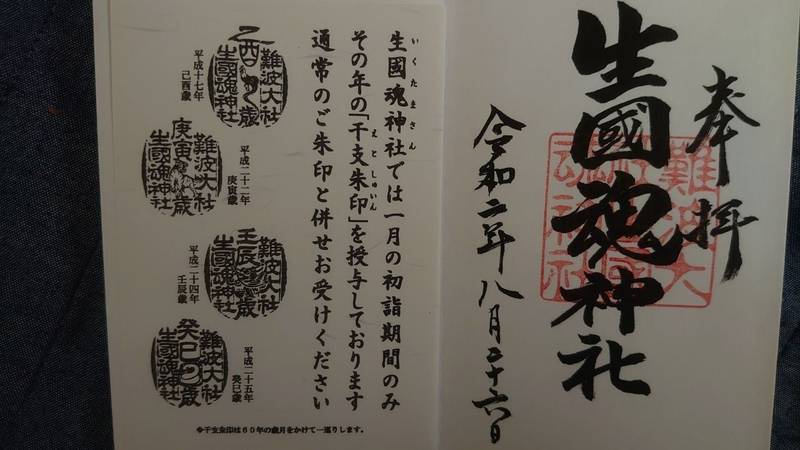 奉拝
生國魂神社
令和二年八月二十六日
いくたまさん
生國魂神社では一月の初詣期間のみ
えとしゅいん
その年の「干支朱印」を授与しております
通常のご朱印と併せお受けください
難波大社
乙酉歳
生國魂神社
平成十七年
己酉歳
難波大社
庚寅歳
生國魂神社
平成二十二年
庚寅歳
難波大社
壬辰歳
生國魂神社
平成二十四年
壬辰歳
難波大社
癸巳歳
生國魂神社
平成二十五年
癸巳歳
※干支朱印は60年の歳月をかけて一巡りします。